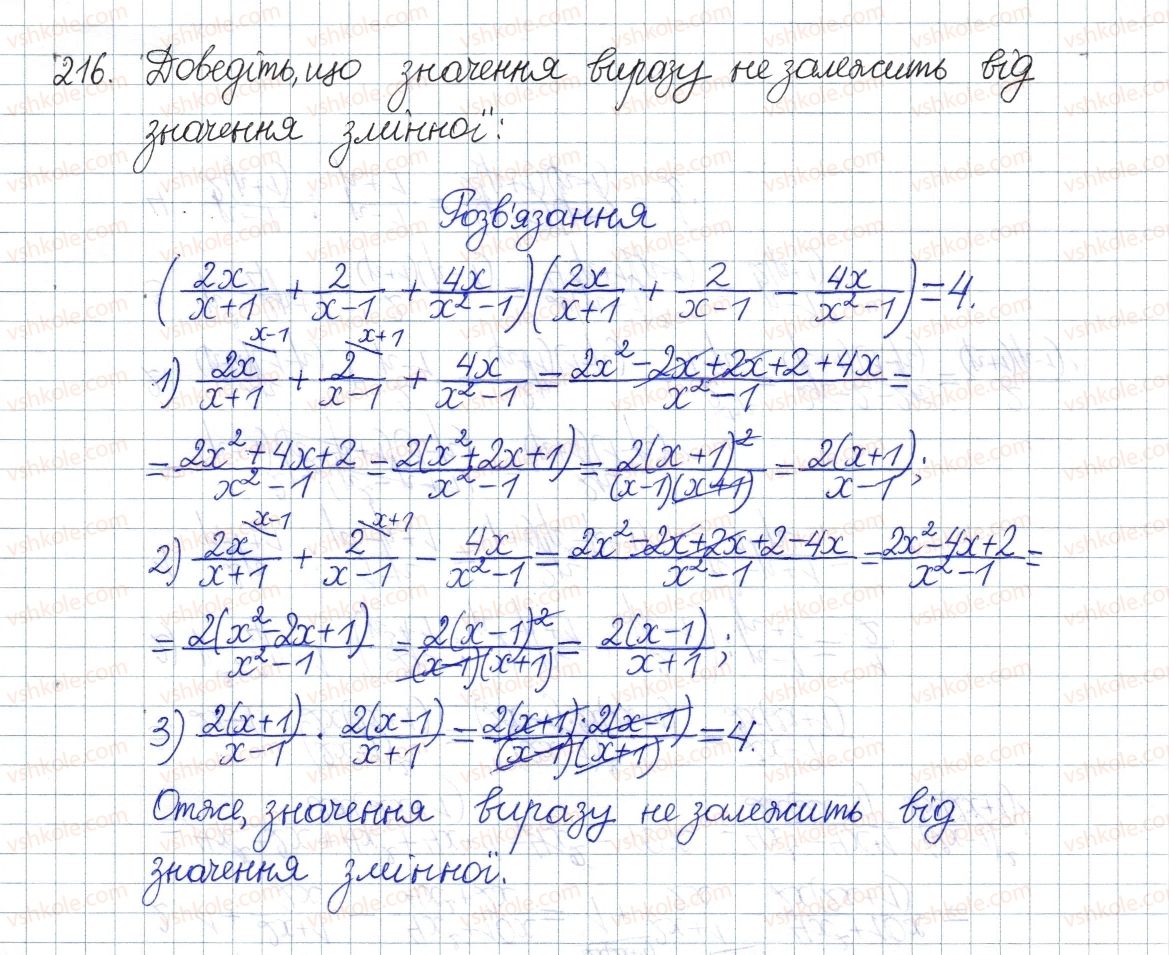 216. Доведіть, що значення виразу не залежить від
значення змінної:
Розв'язання
(2x/(x+1) + 2/(x-1) + 4x/(x²-1))(2x/(x+1) + 2/(x-1) - 4x/(x²-1)) = 4.
1) 2x^{\x-1}/(x+1) + 2^{\x+1}/(x-1) + 4x/(x²-1) = (2x²-2x+2x+2+4x)/(x²-1) =
= (2x²+4x+2)/(x²-1) = 2(x²+2x+1)/(x²-1) = 2(x+1)²/((x-1)(x+1)) = 2(x+1)/(x-1);
2) 2x^{\x-1}/(x+1) + 2^{\x+1}/(x-1) - 4x/(x²-1) = (2x²-2x+2x+2-4x)/(x²-1) = (2x²-4x+2)/(x²-1) =
= 2(x²-2x+1)/(x²-1) = 2(x-1)²/((x-1)(x+1)) = 2(x-1)/(x+1);
3) 2(x+1)/(x-1) · 2(x-1)/(x+1) = 2(x+1)·2(x-1)/((x-1)(x+1)) = 4.
Отже, значення виразу не залежить від
значення змінної.
vshkole.com